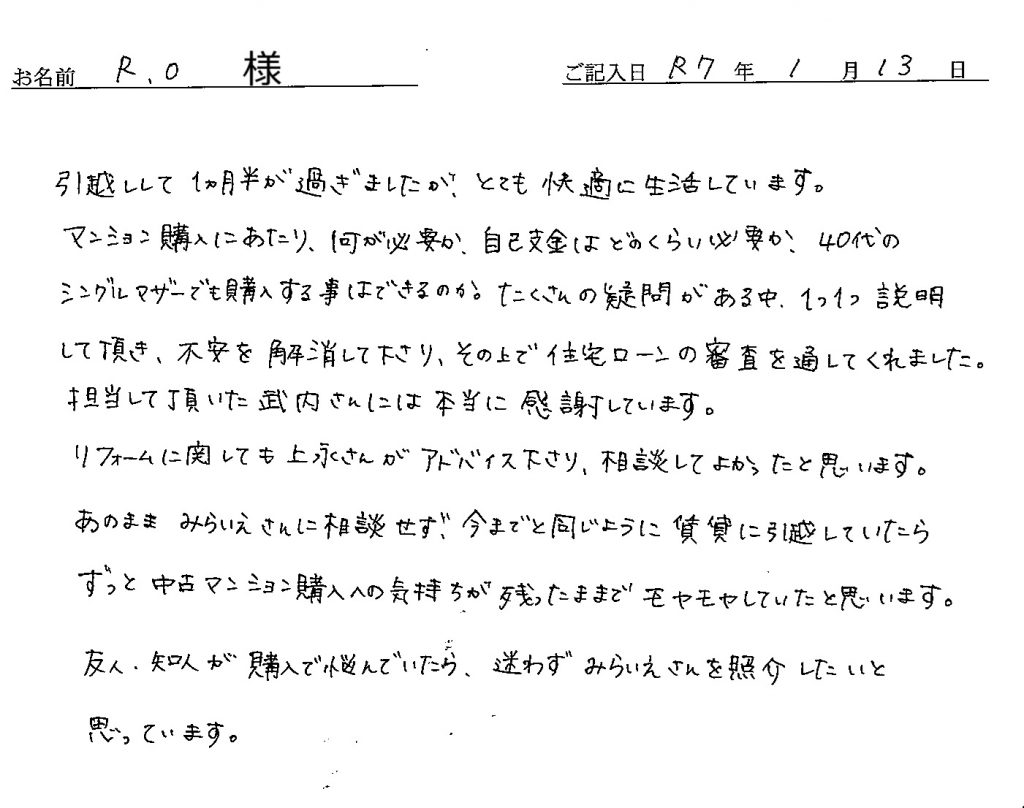 お名前 R.O 様 ご記入日 R7年 1月13日
引越しして1ヵ月半が過ぎましたが、とても快適に生活しています。
マンション購入にあたり、何が必要か、自己支金はどのくらい必要か、40代の
シングルマザーでも購入する事はできるのか。たくさんの疑問がある中、1つ1つ説明
して頂き、不安を解消して下さり、その上で住宅ローンの審査を通してくれました。
担当して頂いた武内さんには本当に感謝しています。
リフォームに関しても上永さんがアドバイス下さり、相談してよかったと思います。
あのままみらいえさんに相談せず、今までと同じように賃貸に引越していたら
ずっと中古マンション購入への気持ちが残ったままでモヤモヤしていたと思います。
友人、知人が購入で悩んでいたら、迷わずみらいえさんを照介したいと
思っています。